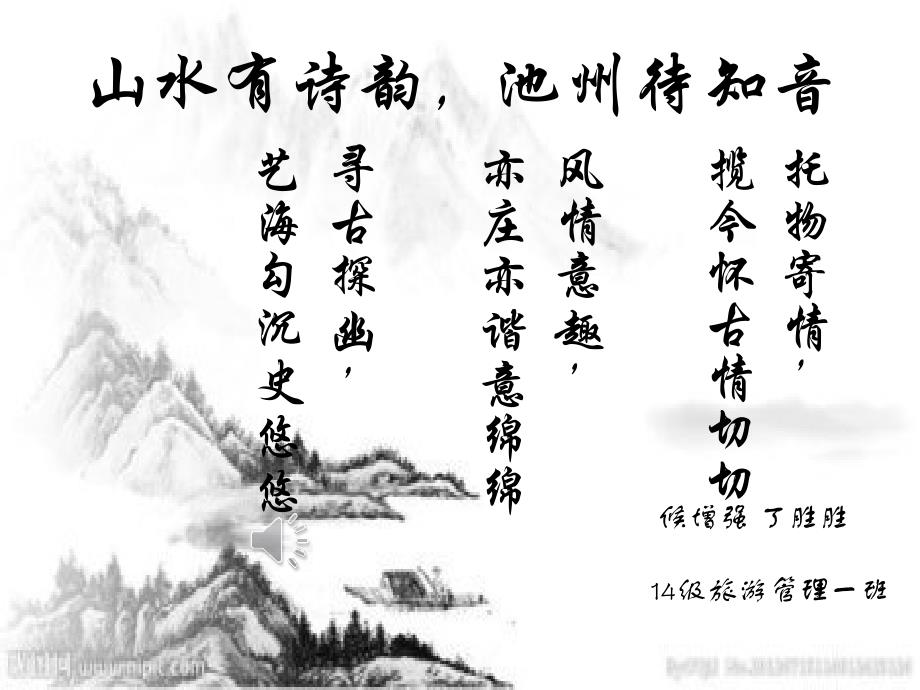 山水有诗韵，池州待知音
托物寄情，
揽今怀古情切切
风情意趣，
亦庄亦谐意绵绵
寻古探幽，
艺海勾沉史悠悠
候增强 丁胜胜
14级旅游管理一班